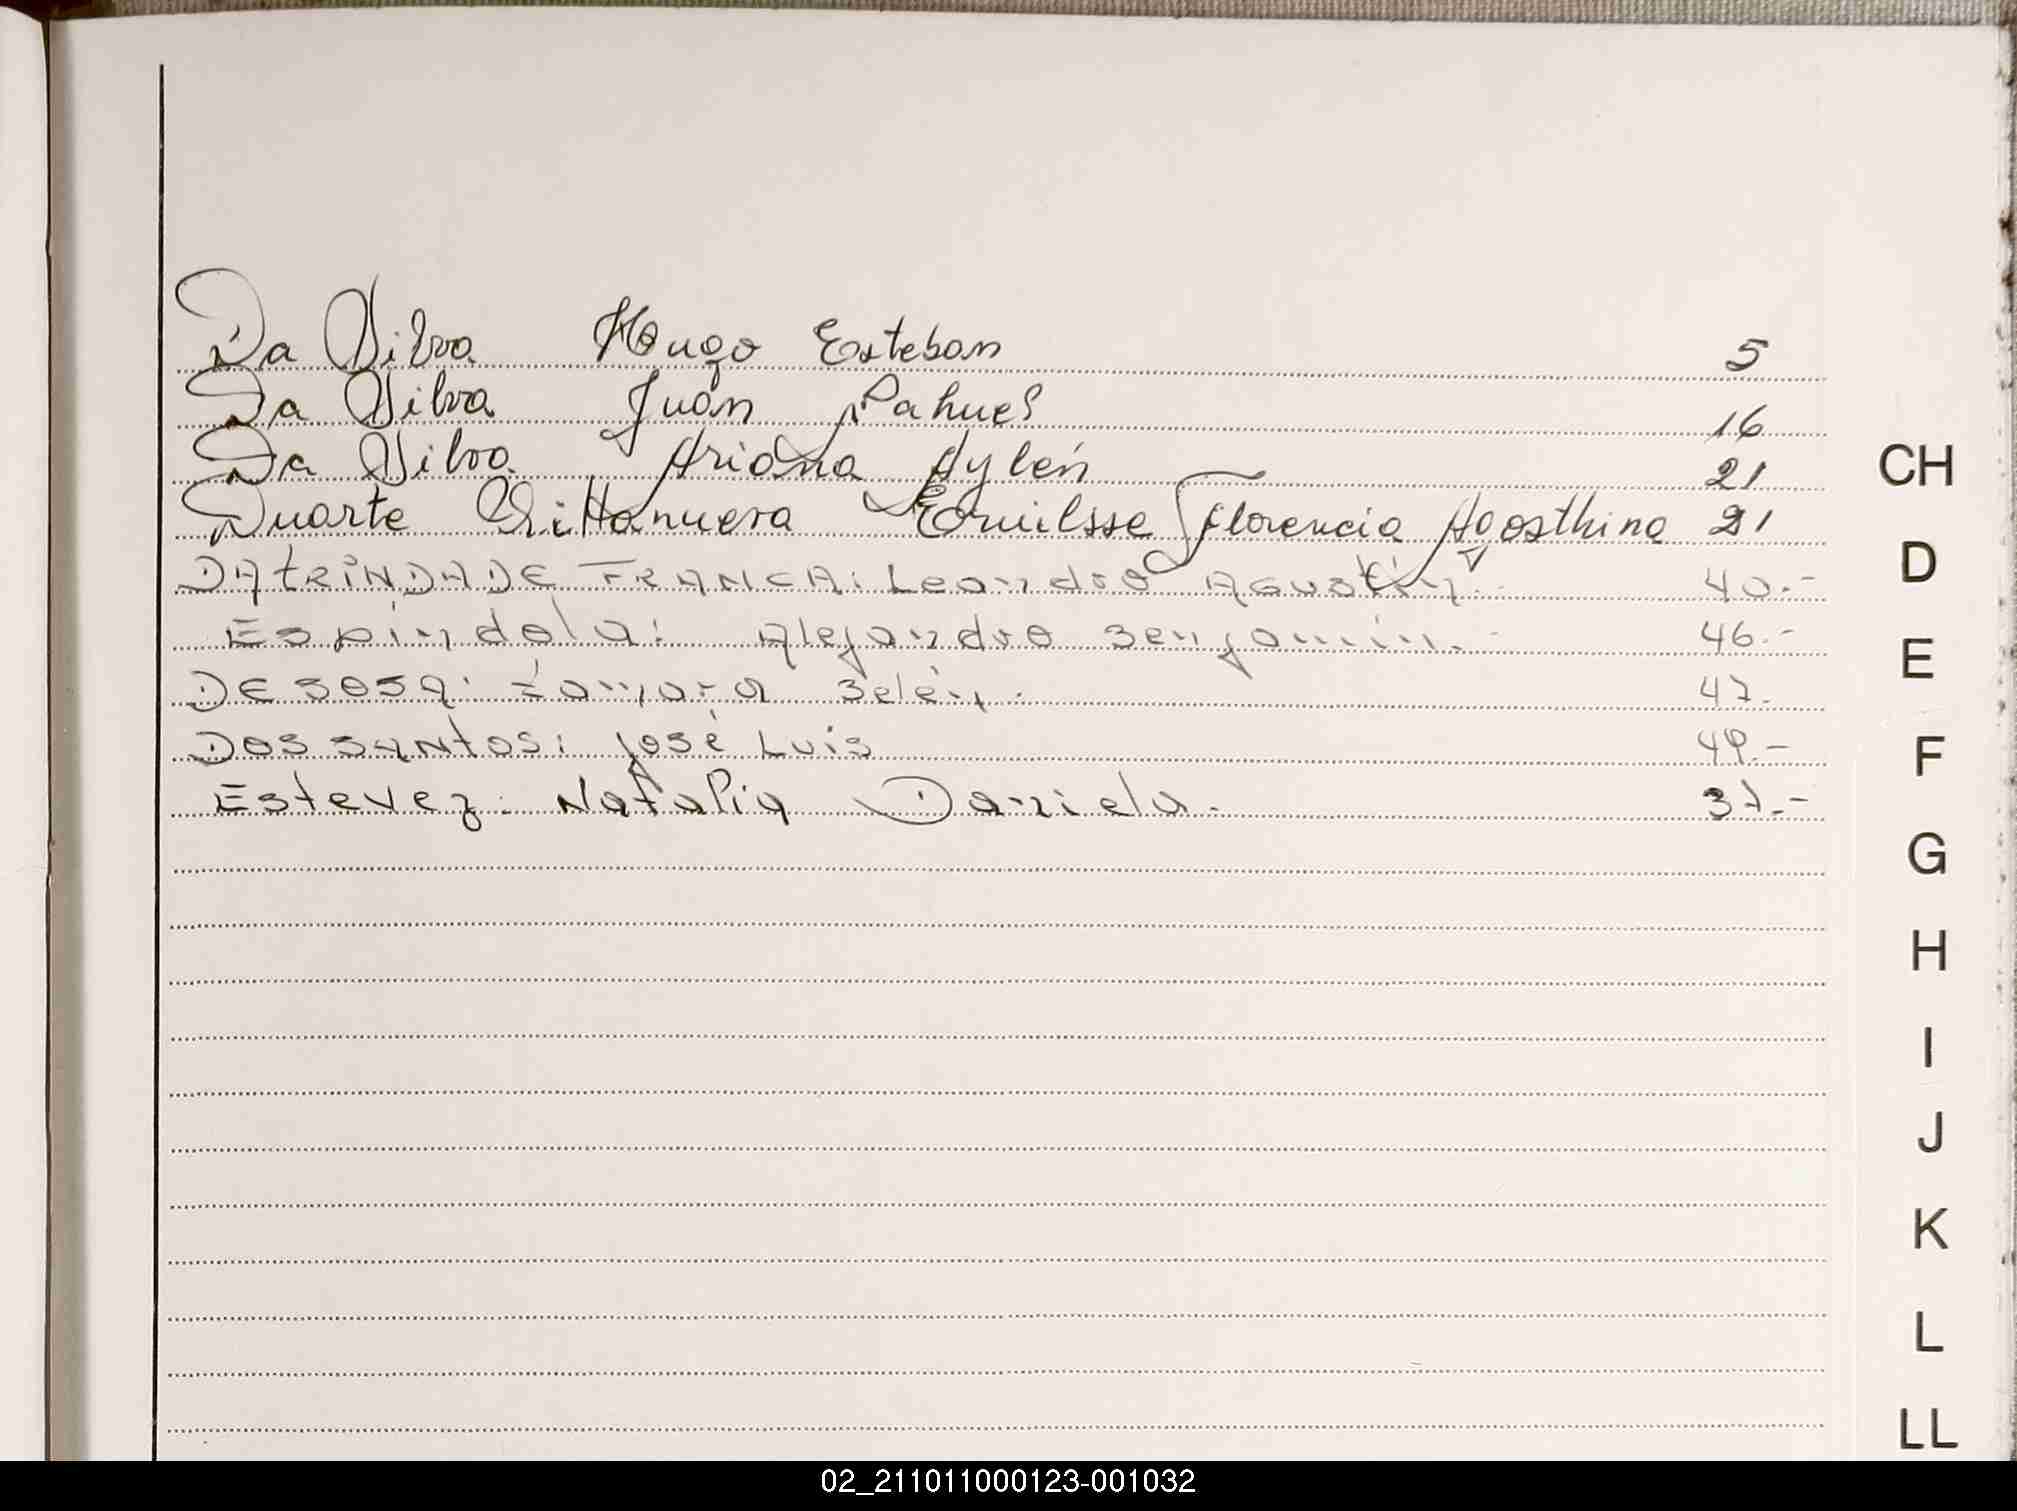 Da Silva Hugo Esteban 5
Da Silva Juan Nahuel 16
Da Silva Ariana Aylén 21
Duarte Villanueva Emilsse Florencia Agosthina 21
DAtRINDADE FRANCA: Leandro AGustín.- 40.-
Espíndola: Alejandro Benjamín.- 46.-
DE SOSA: Tamara Belén. 47.
DOS SANtos: José Luis 49.-
Estevez. Natalia Daniela. 37.-
CH
D
E
F
G
H
I
J
K
L
LL
02_211011000123-001032